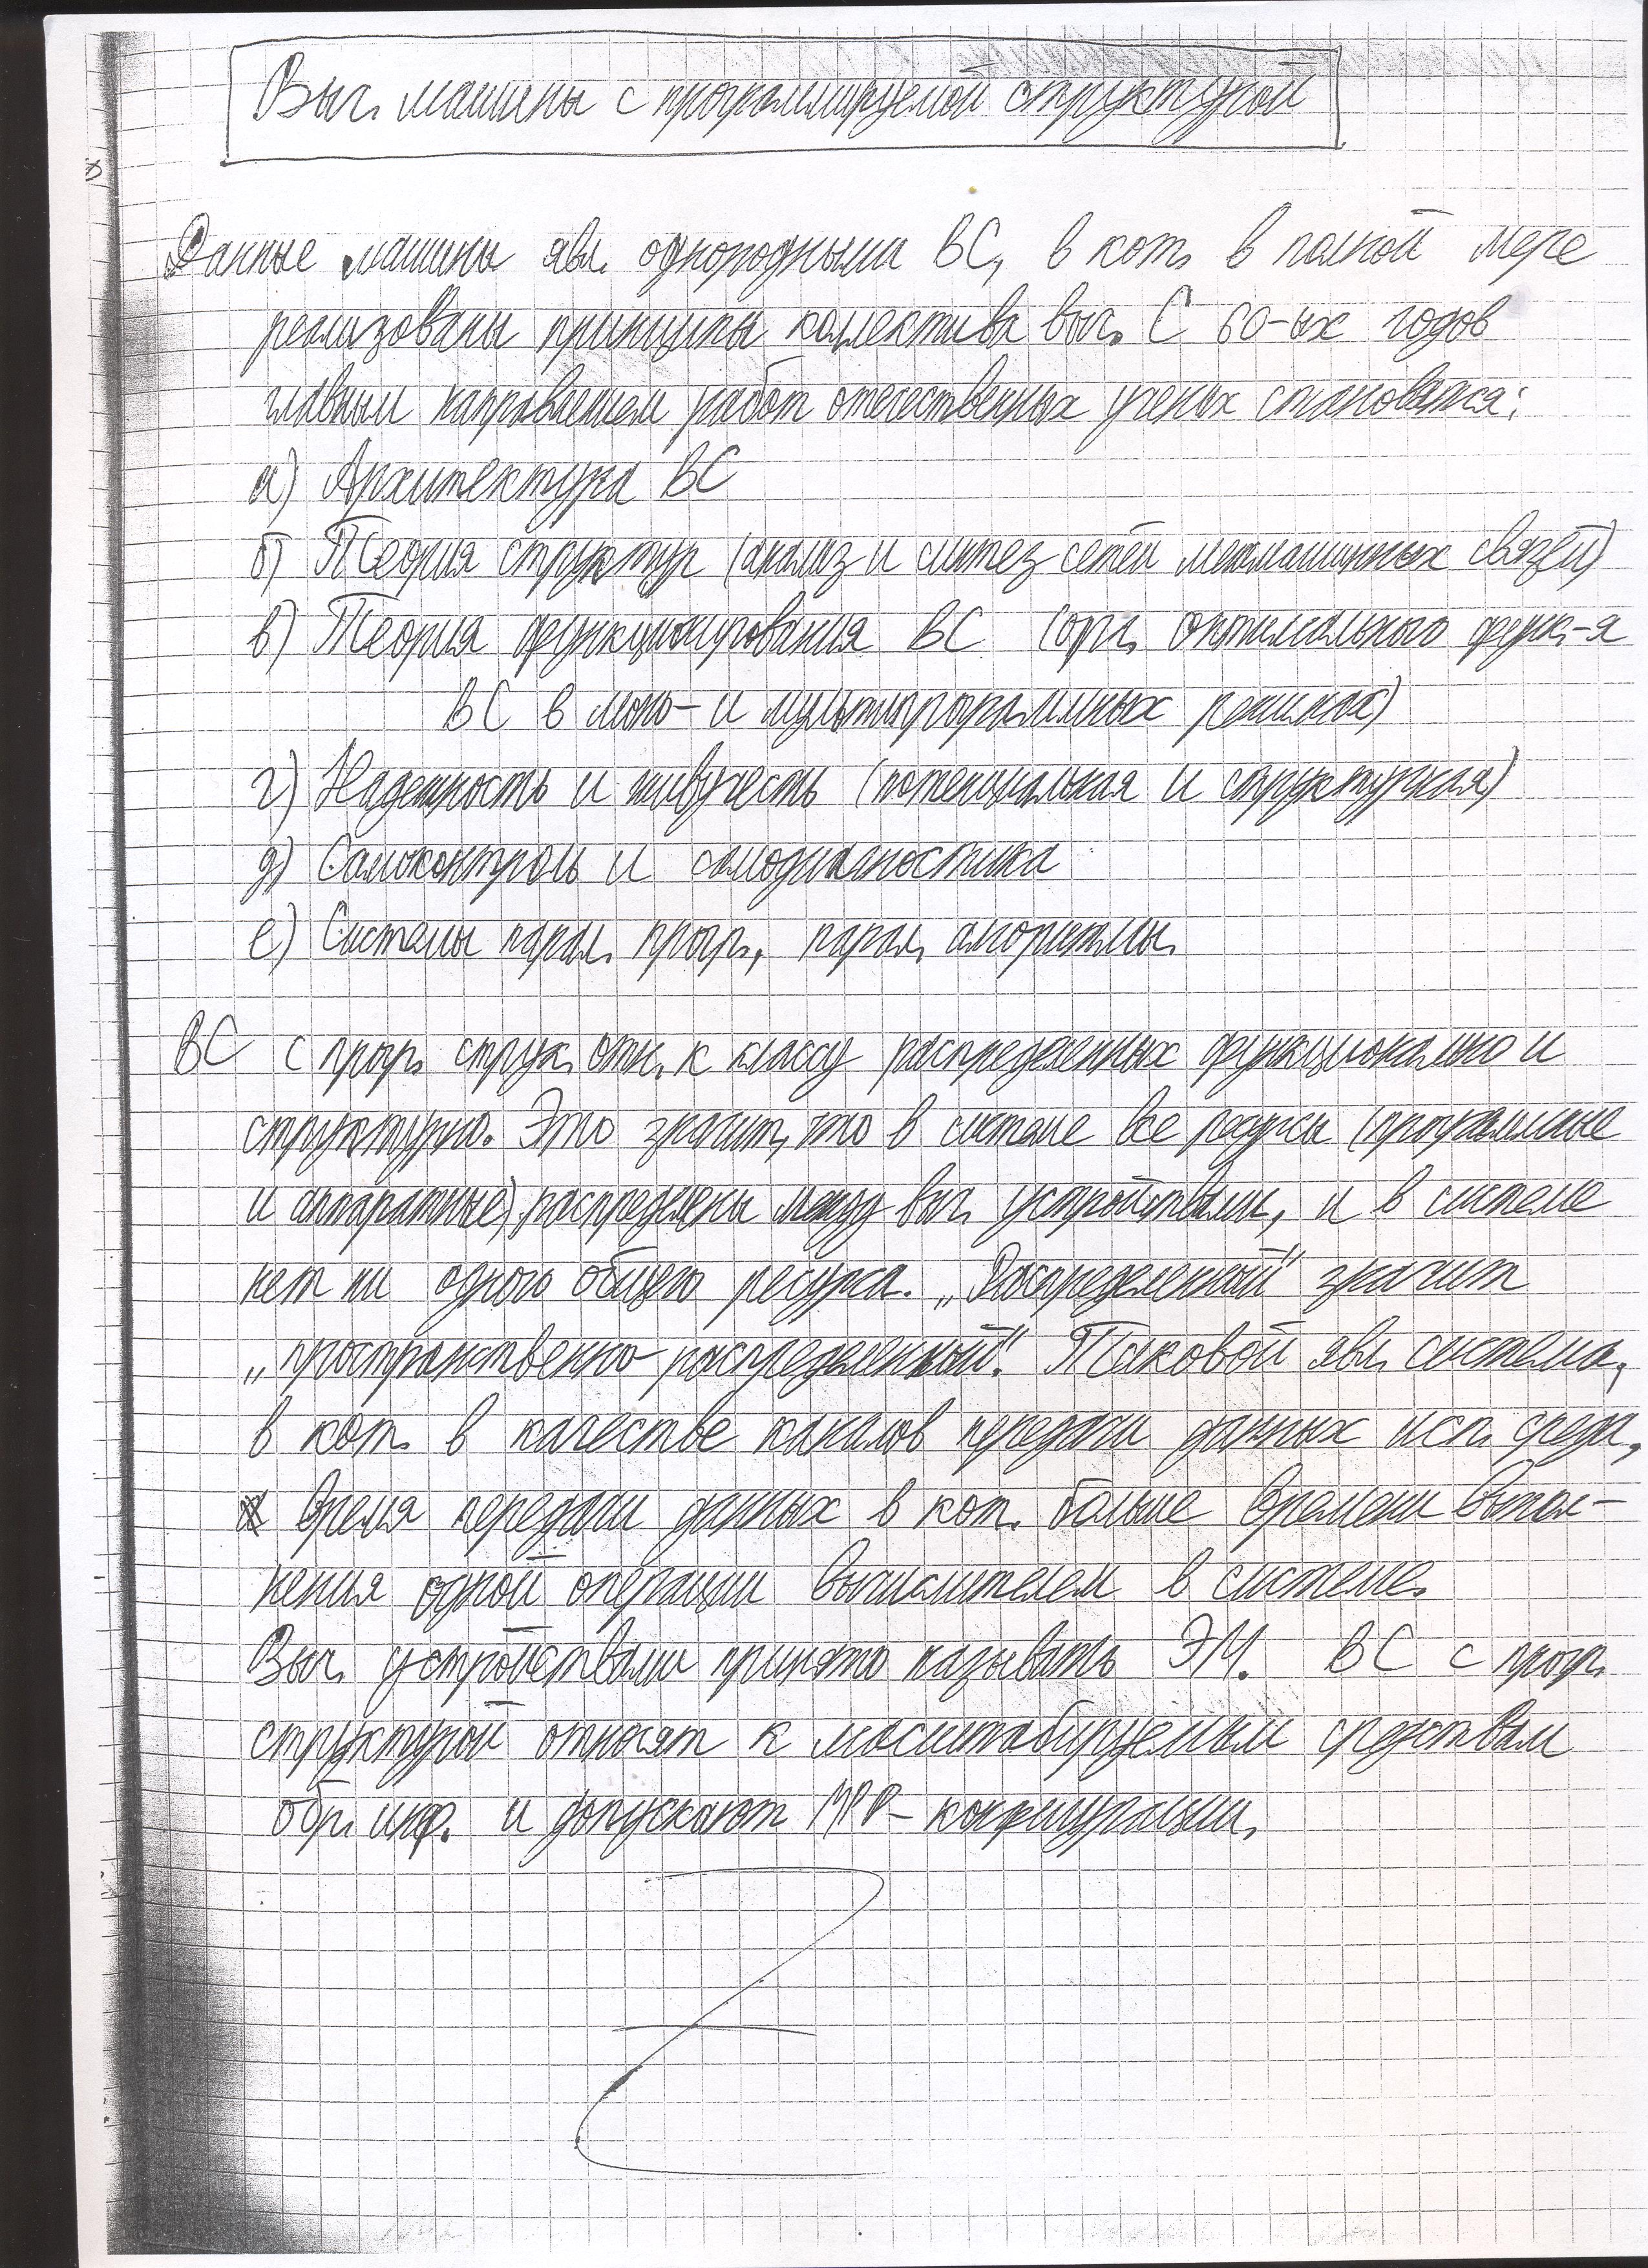 Выч. машины с программируемой структурой
Данные машины явл. однородными ВС, в кот. в полной мере
реализованы принципы коллектива выч. С 60-ых годов
главным направлением работ отечественных ученых становятся:
а) Архитектура ВС
б) Теория структур (анализ и синтез сетей межмашинных связей)
в) Теория функционирования ВС (орг. оптимального функ-я
ВС в моно- и мультипрограммных режимах)
г) Надежность и живучесть (потенциальная и структурная)
д) Самоконтроль и самодиагностика
е) Системы парал. прогр., парал. алгоритмы.
ВС с прогр. струк. отн. к классу распределенных функционально и
структурно. Это значит, что в системе все ресурсы (программные
и аппаратные) распределены между выч. устройствами, и в системе
нет ни одного общего ресурса. „Распределенный" значит
„пространственно-распределенный". Таковой явл. система,
в кот. в качестве каналов передачи данных исп. среда,
время передачи данных в кот. больше времени выпол-
нения одной операции вычислителем в системе.
Выч. устройствами принято называть ЭМ. ВС с прогр.
структурой относят к масштабируемым средствам
обр. инф. и допускают MPP-конфигурации.